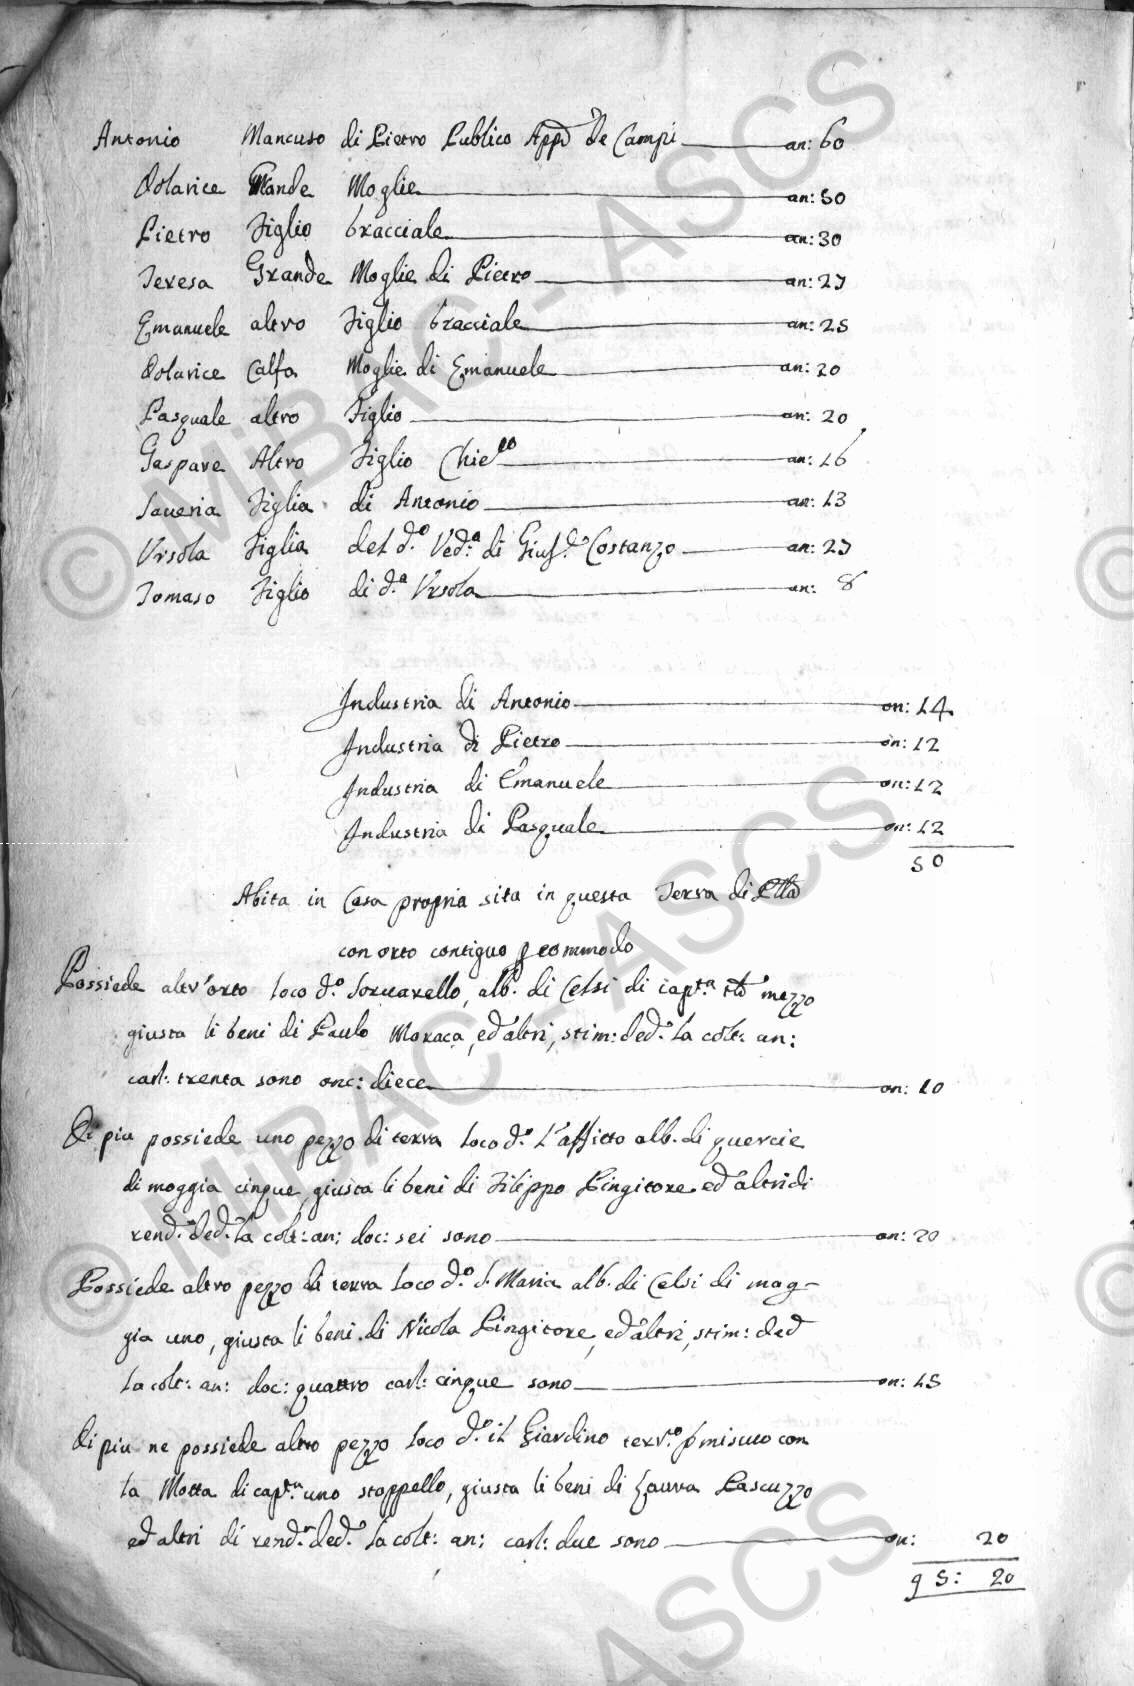 Antonio Mancuso di Pietro Publico App.o de Campi an: 60
Dolarice Mande Moglie an: 50
Pietro figlio bracciale an: 30
Teresa Grande Moglie di Pietro an: 27
Emanuele altro figlio bracciale an: 25
Dolarice Calfa Moglie di Emanuele an: 20
Pasquale altro figlio an: 20
Gaspare Altro figlio Chieco an: 16
Saveria figlia di Antonio an: 13
Ursola figlia del d.o Ved.a di Gius.e Costanzo an: 27
Tomaso figlio di d.a Ursola an: 8
Industria di Antonio on: 14
Industria di Pietro on: 12
Industria di Emanuele on: 12
Industria di Pasquale on: 12
50
Abita in Casa propria sita in questa Terra di
con orto contiguo p commodo
Possiede altr'orto loco d.o, alb. di Celsi di cap.ta mezzo
giusta li beni di Paulo Moraca, ed'altri, stim: ded.e la colt: an:
carl: trenta sono onc: diece on: 10
Di piu possiede uno pezzo di terra loco d.o L'affitto alb. di quercie
di moggia cinque, giusta li beni di Filippo Pingitore ed'altri di
rend.a ded.e la colt: an: doc: sei sono on: 20
Possiede altro pezzo di terra loco d.o S. Maria alb. di Celsi di mog-
gia uno, giusta li beni di Nicola Pingitore, ed'altri, stim: ded.e
la colt: an: doc: quattro carl: cinque sono on: 15
Di piu ne possiede altro pezzo loco d.o il Giardino terr.o pmisuco con
la Motta di cap.ta uno stoppello, giusta li beni di Laura Pascuzzo
ed altri di rend.a ded.e la colt: an: carl: due sono on: 20
95: 20
© MiBAC - ASCS
© MiBAC - ASCS